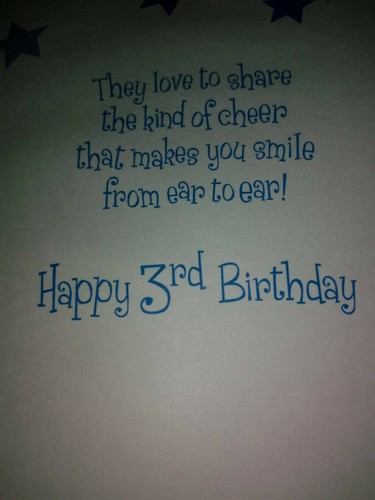 They love to share
the kind of cheer
that makes you smile
from ear to ear!
Happy 3rd Birthday